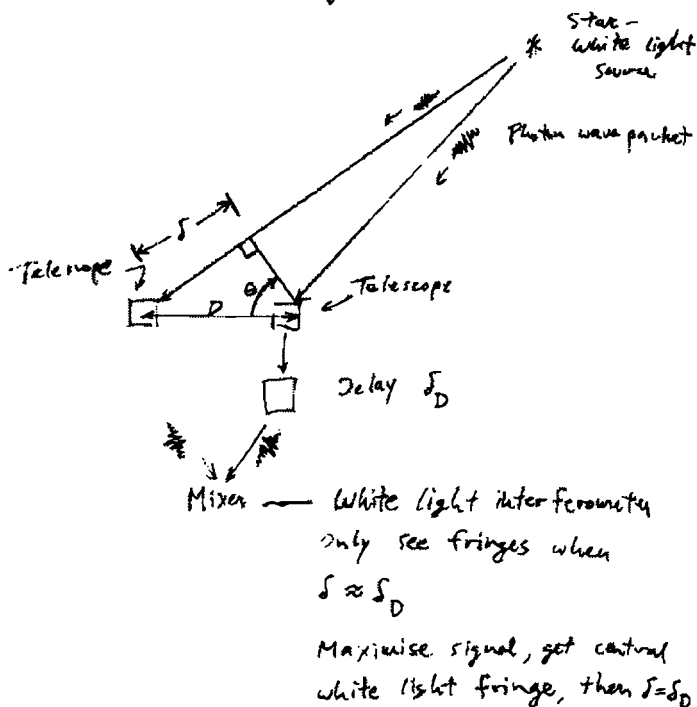 Star –
white light
source
Photon wave packet
δ
Telescope
θ
D
Telescope
Delay δ_D
Mixer — White light interferometer
only see fringes when
δ ≈ δ_D
Maximise signal, get central
white light fringe, then δ=δ_D